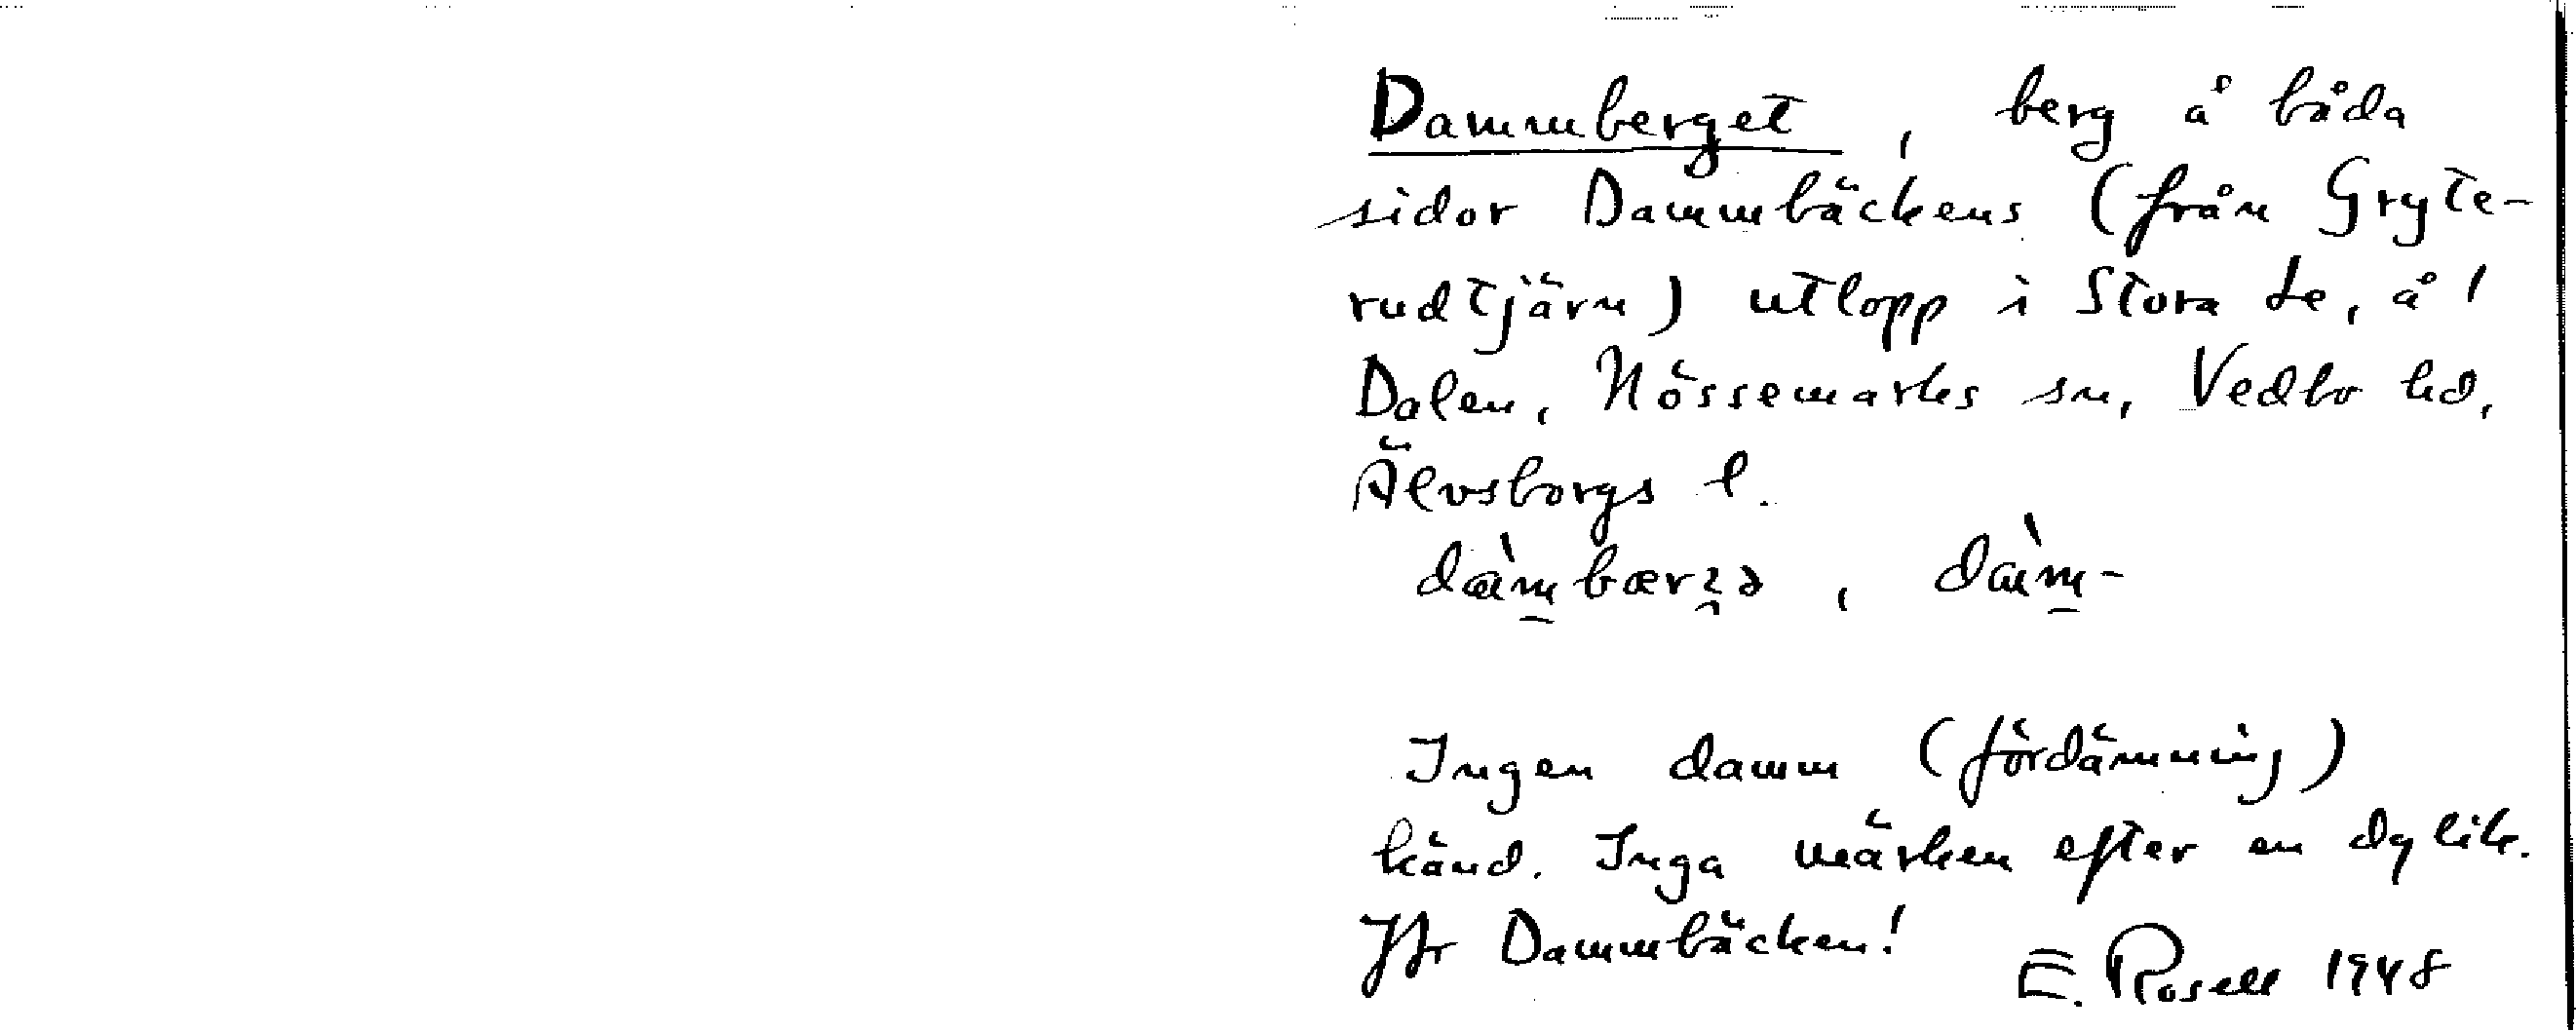 Dammberget, berg å båda
sidor Dammbäckens (från Gryte-
rudtjärn) utlopp i Stora Le, å 1
Dalen, Nössemarks sn, Vedbo hd,
Älvsborgs l.
Ingen damm (fördämning)
känd. Inga märken efter en dylik.
Jfr Dammbäcken!
E. Rosell 1948